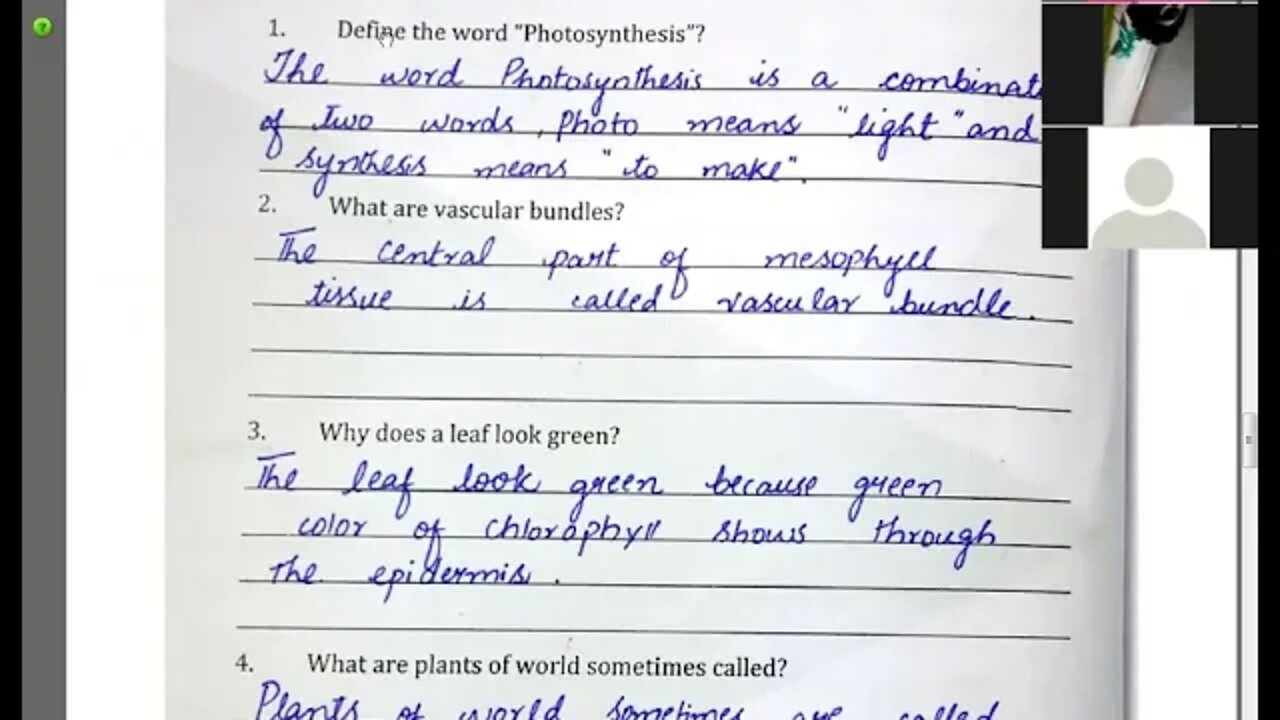 1. Define the word "Photosynthesis"?
The word Photosynthesis is a combinat
of Two words, Photo means "light" and
synthesis means "to make".
2. What are vascular bundles?
The central part of mesophyll
tissue is called vascular bundle.
3. Why does a leaf look green?
The leaf look green because green
color of chlorophyll shows through
the epidermis.
4. What are plants of world sometimes called?
Plants of world sometimes are called